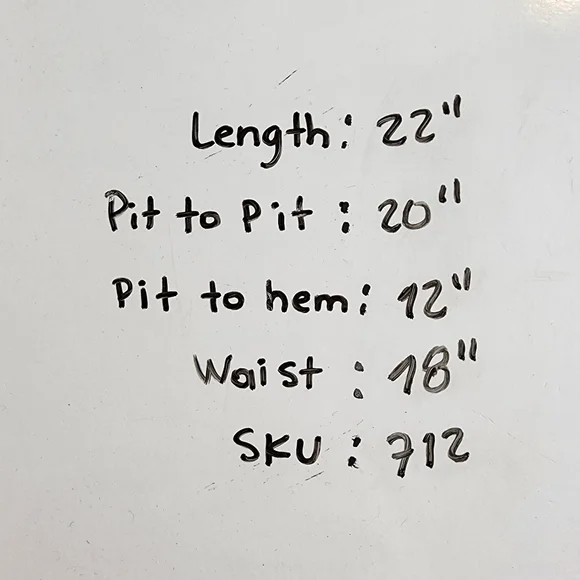 Length: 22"
Pit to Pit: 20"
Pit to hem: 12"
Waist: 18"
SKU: 712